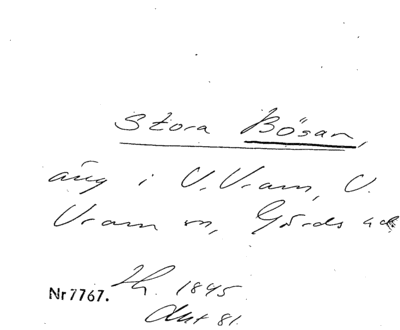 Stora Bösan,
äng i V. Vram, V.
Vram sn, Gärds hd
Nr 7767. Lh. 1845
Akt 81.